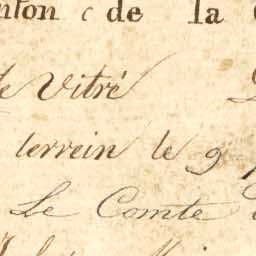 de la
de Vitré
terrein le 9
Le Comte